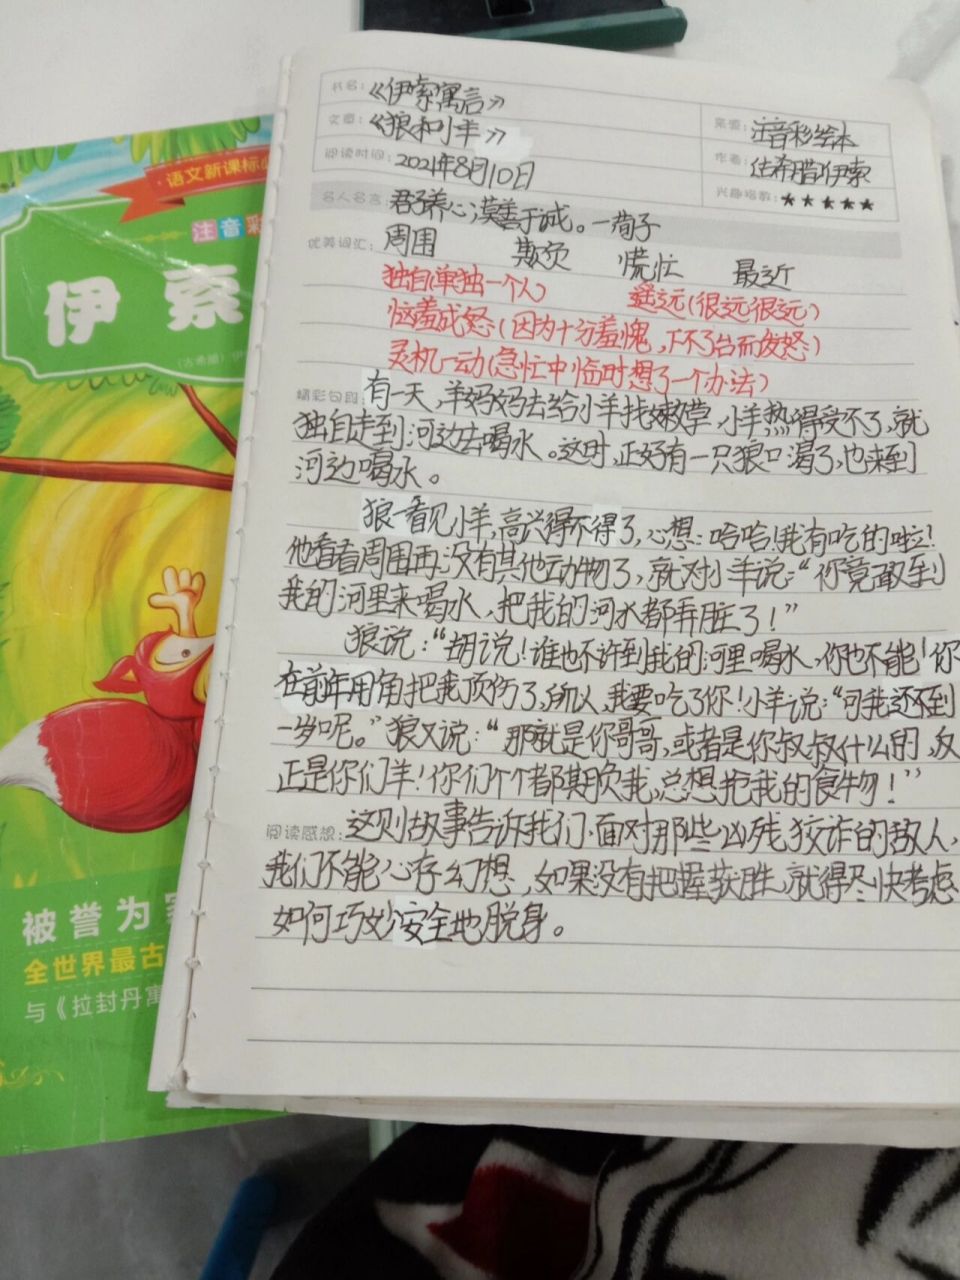 书名：《伊索寓言》
文章：《狼和小羊》
来源：注音彩绘本
阅读时间：2021年8月10日
作者：(古希腊)伊索
兴趣指数：★★★★★
名人名言：君子养心莫善于诚。—荀子
优美词汇：周围 欺负 慌忙 最近
独自(单独一个人) 遥远(很远很远)
恼羞成怒(因为十分羞愧，下不了台而发怒)
灵机一动(急忙中临时想了一个办法)
精彩句段：有一天，羊妈妈去给小羊找嫩草，小羊热得受不了，就
独自走到河边去喝水。这时，正好有一只狼口渴了，也来到
河边喝水。
狼一看见小羊，高兴得不得了，心想：哈哈！我有吃的啦！
他看看周围再没有其他动物了，就对小羊说：“你竟敢到
我的河里来喝水，把我的河水都弄脏了！”
狼说：“胡说！谁也不许到我的河里喝水，你也不能！你
在前年用角把我顶伤了，所以，我要吃了你！小羊说：“可我还不到
一岁呢。”狼又说：“那就是你哥哥，或者是你叔叔什么的，反
正是你们羊！你们个个都欺负我，总想把我的食物！”
阅读感想：这则故事告诉我们，面对那些凶残、狡诈的敌人，
我们不能心存幻想，如果没有把握获胜，就得尽快考虑
如何巧妙安全地脱身。
语文新课标必
注音彩
伊索
(古希腊)伊
被誉为
全世界最古
与《拉封丹寓